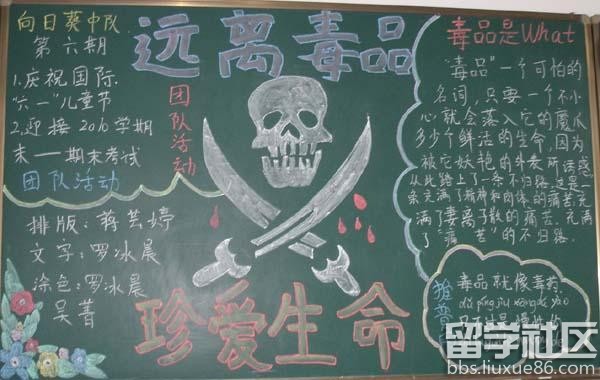 向日葵中队
第六期
1.庆祝国际
"六一"儿童节
2.迎接2010学期
末——期末考试
团队活动
排版:蒋芸婷
文字:罗冰晨
涂色:罗冰晨
吴菁
远离毒品
团队活动
珍爱生命
毒品是What
"毒品"一个可怕的
名词,只要一个不小
心就会落入它的魔爪
多少个鲜活的生命,因为
被它妖艳的外表所诱惑
从此踏上了一条不归路,这是一
条充满了精神和肉体的痛苦,充
满了妻离子散的痛苦,充满
了"痛苦"的不归路.
毒品就像毒药
留学社区
bbs.liuxue86.com